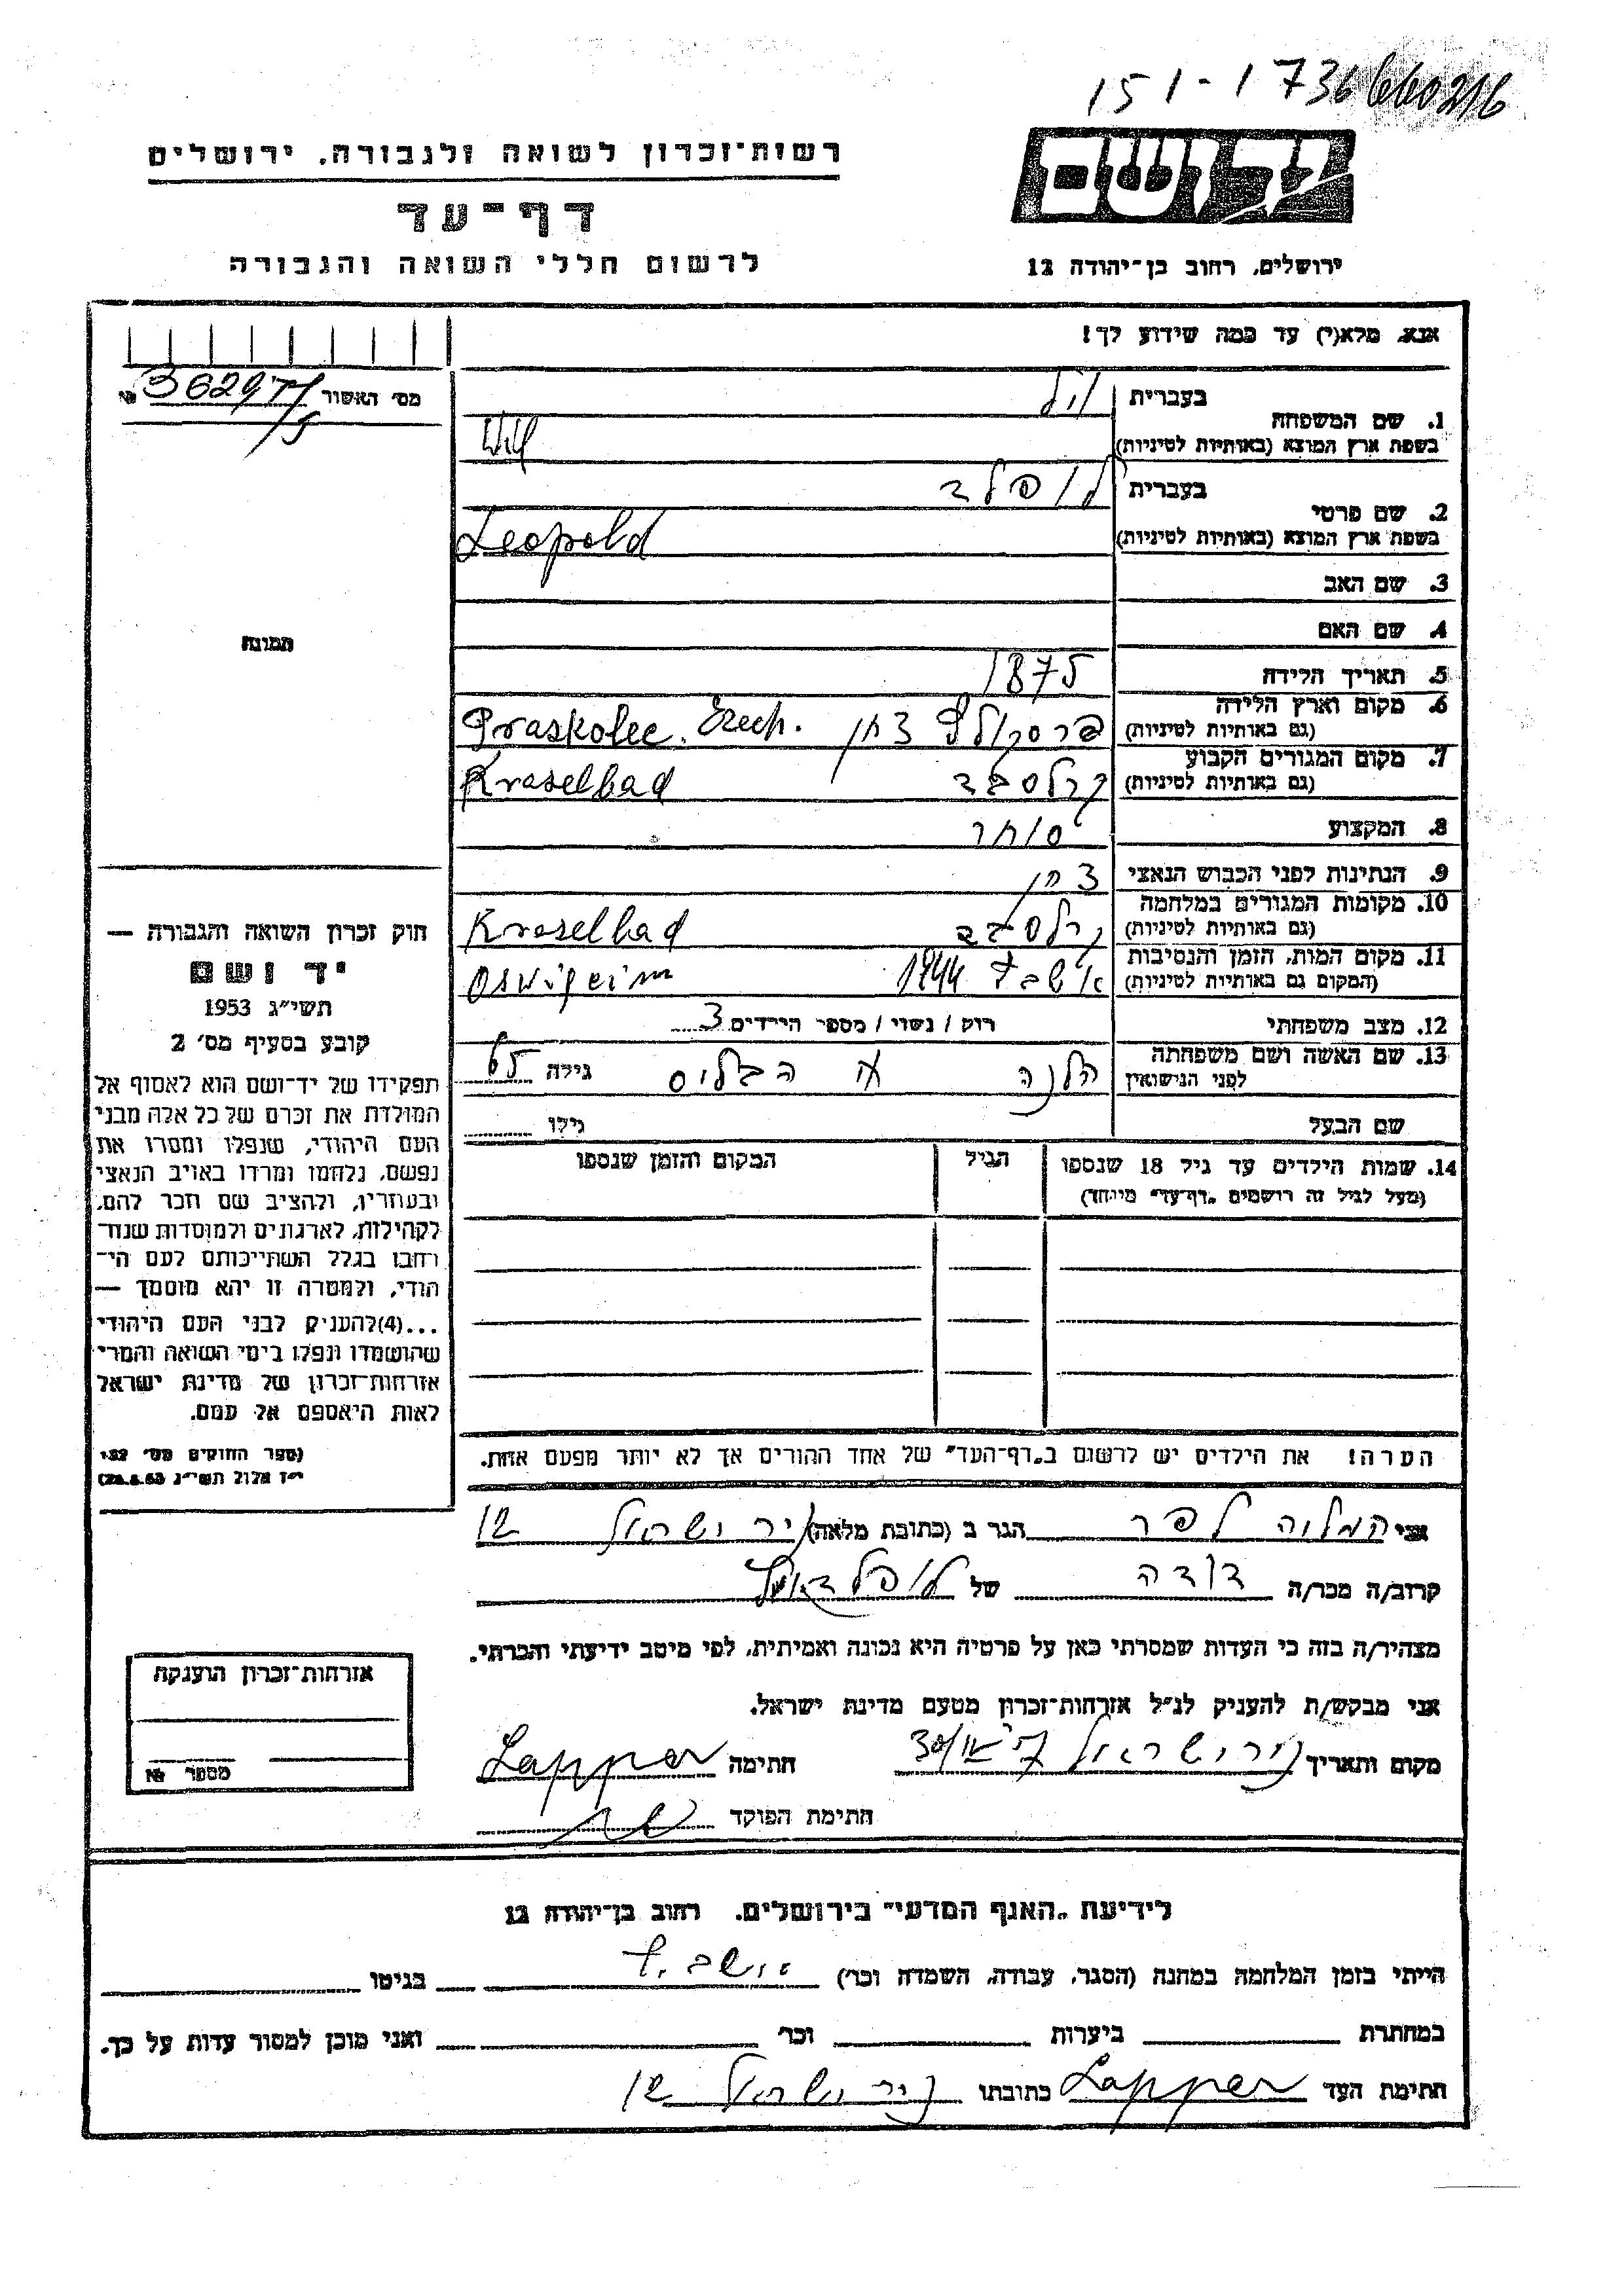 151-1736660216
יד ושם
רשות־זכרון לשואה ולגבורה. ירושלים
דף־עד
לרשום חללי השואה והגבורה
ירושלים, רחוב בן־יהודה 12
אנא, מלא(י) עד כמה שידוע לך!
מס׳ האשור 3629
1. שם המשפחה
בעברית
בשפת ארץ המוצא (באותיות לטיניות)
2. שם פרטי
בעברית לופלד
בשפת ארץ המוצא (באותיות לטיניות) Leopold
3. שם האב
4. שם האם
5. תאריך הלידה 1875
6. מקום וארץ הלידה
(גם באותיות לטיניות) Praskolec. Czech.
7. מקום המגורים הקבוע
(גם באותיות לטיניות) קרלסבד Kraselbad
8. המקצוע סוחר
9. הנתינות לפני הכבוש הנאצי
10. מקומות המגורים במלחמה
(גם באותיות לטיניות) קרלסבד Kraselbad
11. מקום המות, הזמן והנסיבות
(המקום גם באותיות לטיניות) 1944
12. מצב משפחתי רוק / נשוי / מספר הילדים 3
13. שם האשה ושם משפחתה
לפני הנישואין הלנה גילה 65
שם הבעל גילו
14. שמות הילדים עד גיל 18 שנספו הגיל המקום והזמן שנספו
(מעל לגיל זה רושמים „דף־עד״ מיוחד)
הערה! את הילדים יש לרשום ב„דף־העד״ של אחד ההורים אך לא יותר מפעם אחת.
תמונה
חוק זכרון השואה והגבורה —
יד ושם
תשי״ג 1953
קובע בסעיף מס׳ 2
תפקידו של יד־ושם הוא לאסוף אל
המולדת את זכרם של כל אלה מבני
העם היהודי, שנפלו ומסרו את
נפשם, נלחמו ומרדו באויב הנאצי
ובעוזריו, ולהציב שם וזכר להם,
לקהילות, לארגונים ולמוסדות שנח־
רחבו בגלל השתייכותם לעם הי־
הודי, ולמטרה זו יהא מוסמך —
...(4) להעניק לבני העם היהודי
שהושמדו ונפלו בימי השואה והמרי
אזרחות־זכרון של מדינת ישראל
לאות היאספם אל עמם.
(ספר החוקים מס׳ 132
י״ז אלול תשי״ג 28.8.53)
אני לפר הגר ב (כתובת מלאה) יר ישראל 12
קרוב/ה מכר/ה דודה של
מצהיר/ה בזה כי העדות שמסרתי כאן על פרטיה היא נכונה ואמיתית, לפי מיטב ידיעתי והכרתי.
אני מבקש/ת להעניק לנ״ל אזרחות־זכרון מטעם מדינת ישראל.
מקום ותאריך חתימה Lapper
חתימת הפוקד
אזרחות־זכרון הוענקה
מספר №
לידיעת „האגף המדעי״ בירושלים. רחוב בן־יהודה 12
הייתי בזמן המלחמה במחנה (הסגר, עבודה, השמדה וכר׳) בגיטו
במחתרת ביערות וכר׳ ואני מוכן למסור עדות על כך.
חתימת העד Lapper כתובתו